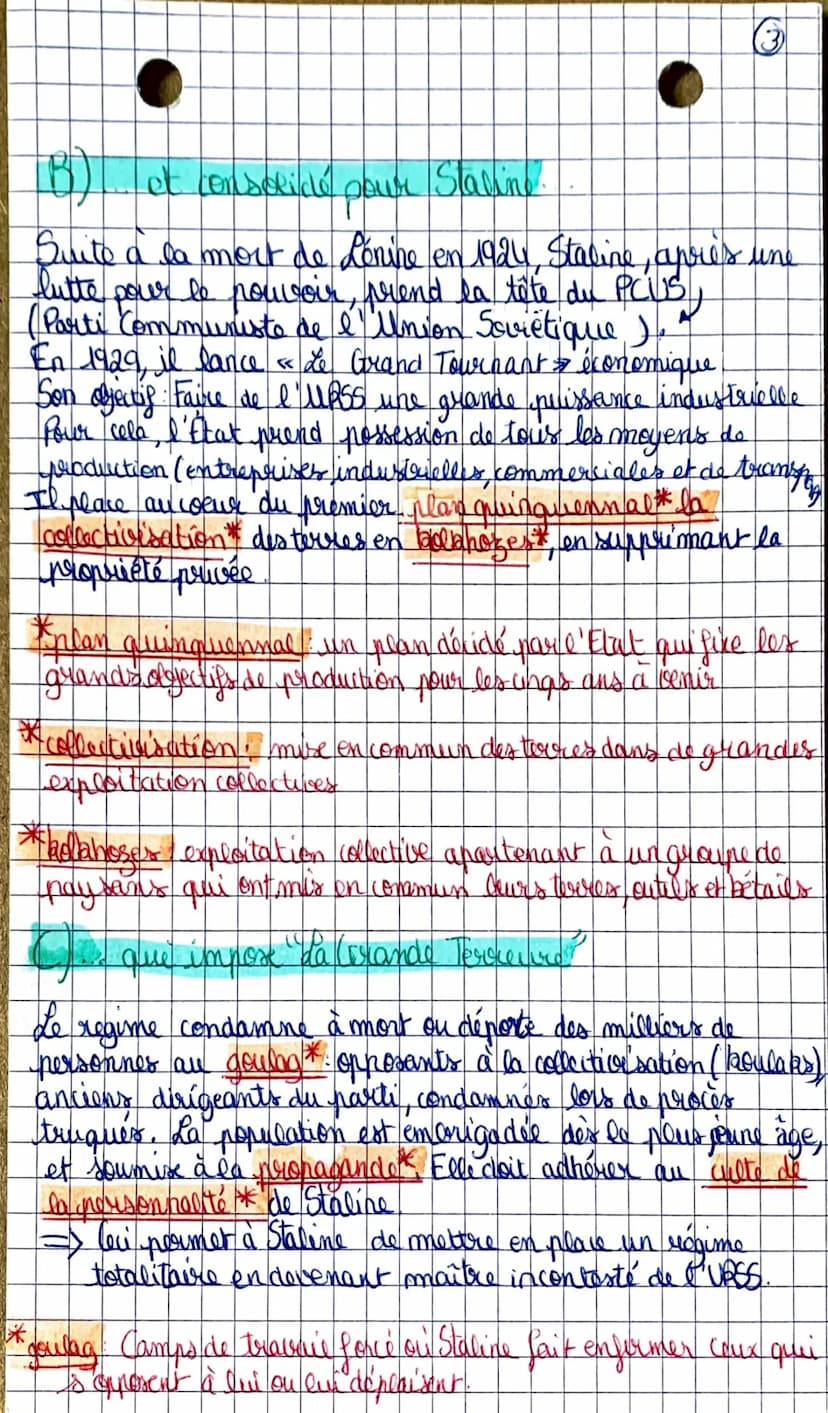 3
B) ... et consolidé pour Staline...
Suite à la mort de Lénine en 1924, Staline, après une
lutte pour le pouvoir, prend la tête du PCUS,
(Parti Communiste de l'Union Soviétique).
En 1929, il lance « Le Grand Tournant » économique.
Son objectif : Faire de l'URSS une grande puissance industrielle
Pour cela, l'État prend possession de tous les moyens de
production (entreprises industrielles, commerciales et de
Il place au coeur du premier plan quinquennal* la
collectivisation* des terres en kolkhozes*, en supprimant la
propriété privée.
*plan quinquennal : un plan décidé par l'Etat qui fixe les
grands objectifs de production pour les cinqs ans à venir
*collectivisation : mise en commun des terres dans de grandes
exploitation collectives
*kolkhozes : exploitation collective apartenant à un groupe de
paysans qui ont mis en commun leurs terres, outils et bétails
C) ... qui impose "La Grande Terreure"
Le regime condamne à mort ou déporte des milliers de
personnes au goulag* : opposants à la collectivisation (koulaks),
anciens dirigeants du parti, condamnés lors de procès
truqués. La population est embrigadée dès le plus jeune âge,
et soumise à la propagande*. Elle doit adhérer au culte de
la personnalité* de Staline.
=> Ceci permet à Staline de mettre en place un régime
totalitaire en devenant maître incontesté de l'URSS.
*goulag : Camps de travail forcé où Staline fait enfermer ceux qui
s'opposent à lui ou lui déplaisent.